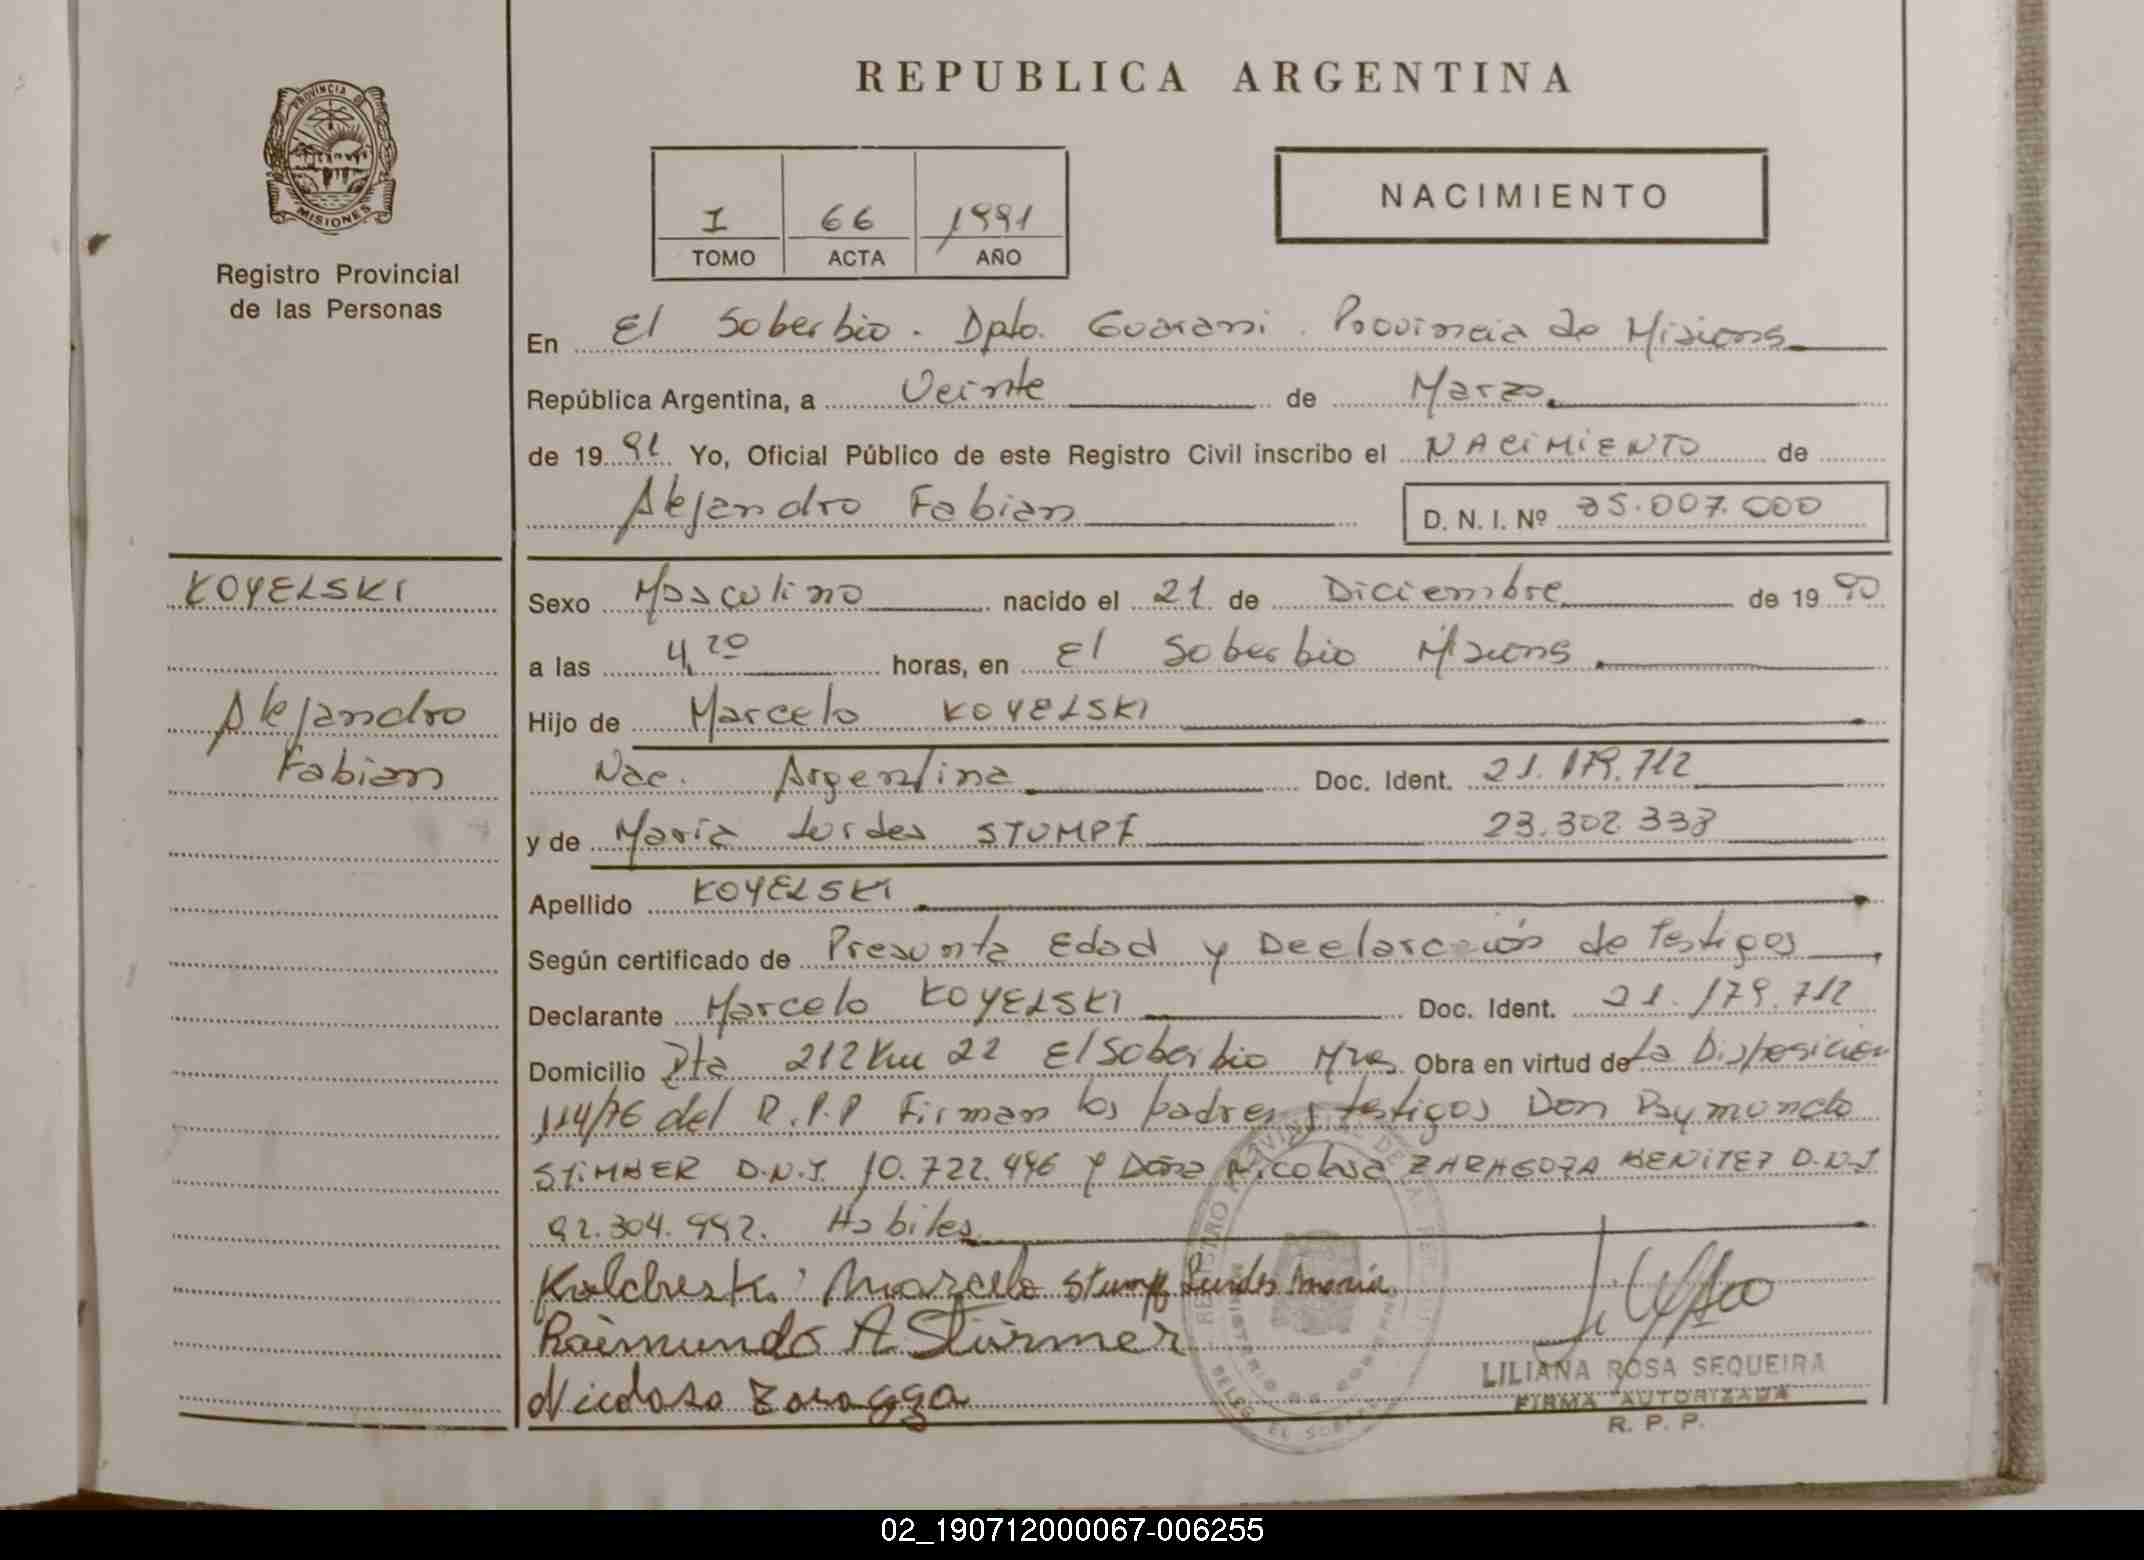 REPUBLICA ARGENTINA
PROVINCIA DE
MISIONES
Registro Provincial
de las Personas
I 66 1991
TOMO ACTA AÑO
NACIMIENTO
En El Soberbio. Dpto. Guarani. Provincia de Misiones
República Argentina, a Veinte de Marzo
de 1991 Yo, Oficial Público de este Registro Civil inscribo el NACIMIENTO de
Alejandro Fabian D. N. I. Nº 35.007.000
KOYELSKI
Alejandro
Fabian
Sexo Masculino nacido el 21 de Diciembre de 1990
a las 4,20 horas, en El Soberbio Misiones
Hijo de Marcelo KOYELSKI
Nac. Argentina Doc. Ident. 21.179.712
y de Maria Lurdes STUMPF 23.302.338
Apellido KOYELSKI
Según certificado de Presunta Edad y Declaración de Testigos
Declarante Marcelo KOYELSKI Doc. Ident. 21.179.712
Domicilio Rta 212 Km 22 El Soberbio Mnes Obra en virtud de La Disposicion
114/76 del R.P.P Firman los padres y testigos Don Raymundo
STIMBER D.N.I. 10.722.496 y Doña Nicolasa ZARAGOZA BENITEZ D.N.I
92.304.992. Habiles
Marcelo Stumpf Lurdes Maria
Raimundo A Stürmer
Nicolasa Zaragoza
LILIANA ROSA SEQUEIRA
FIRMA AUTORIZADA
R. P. P.
02_190712000067-006255